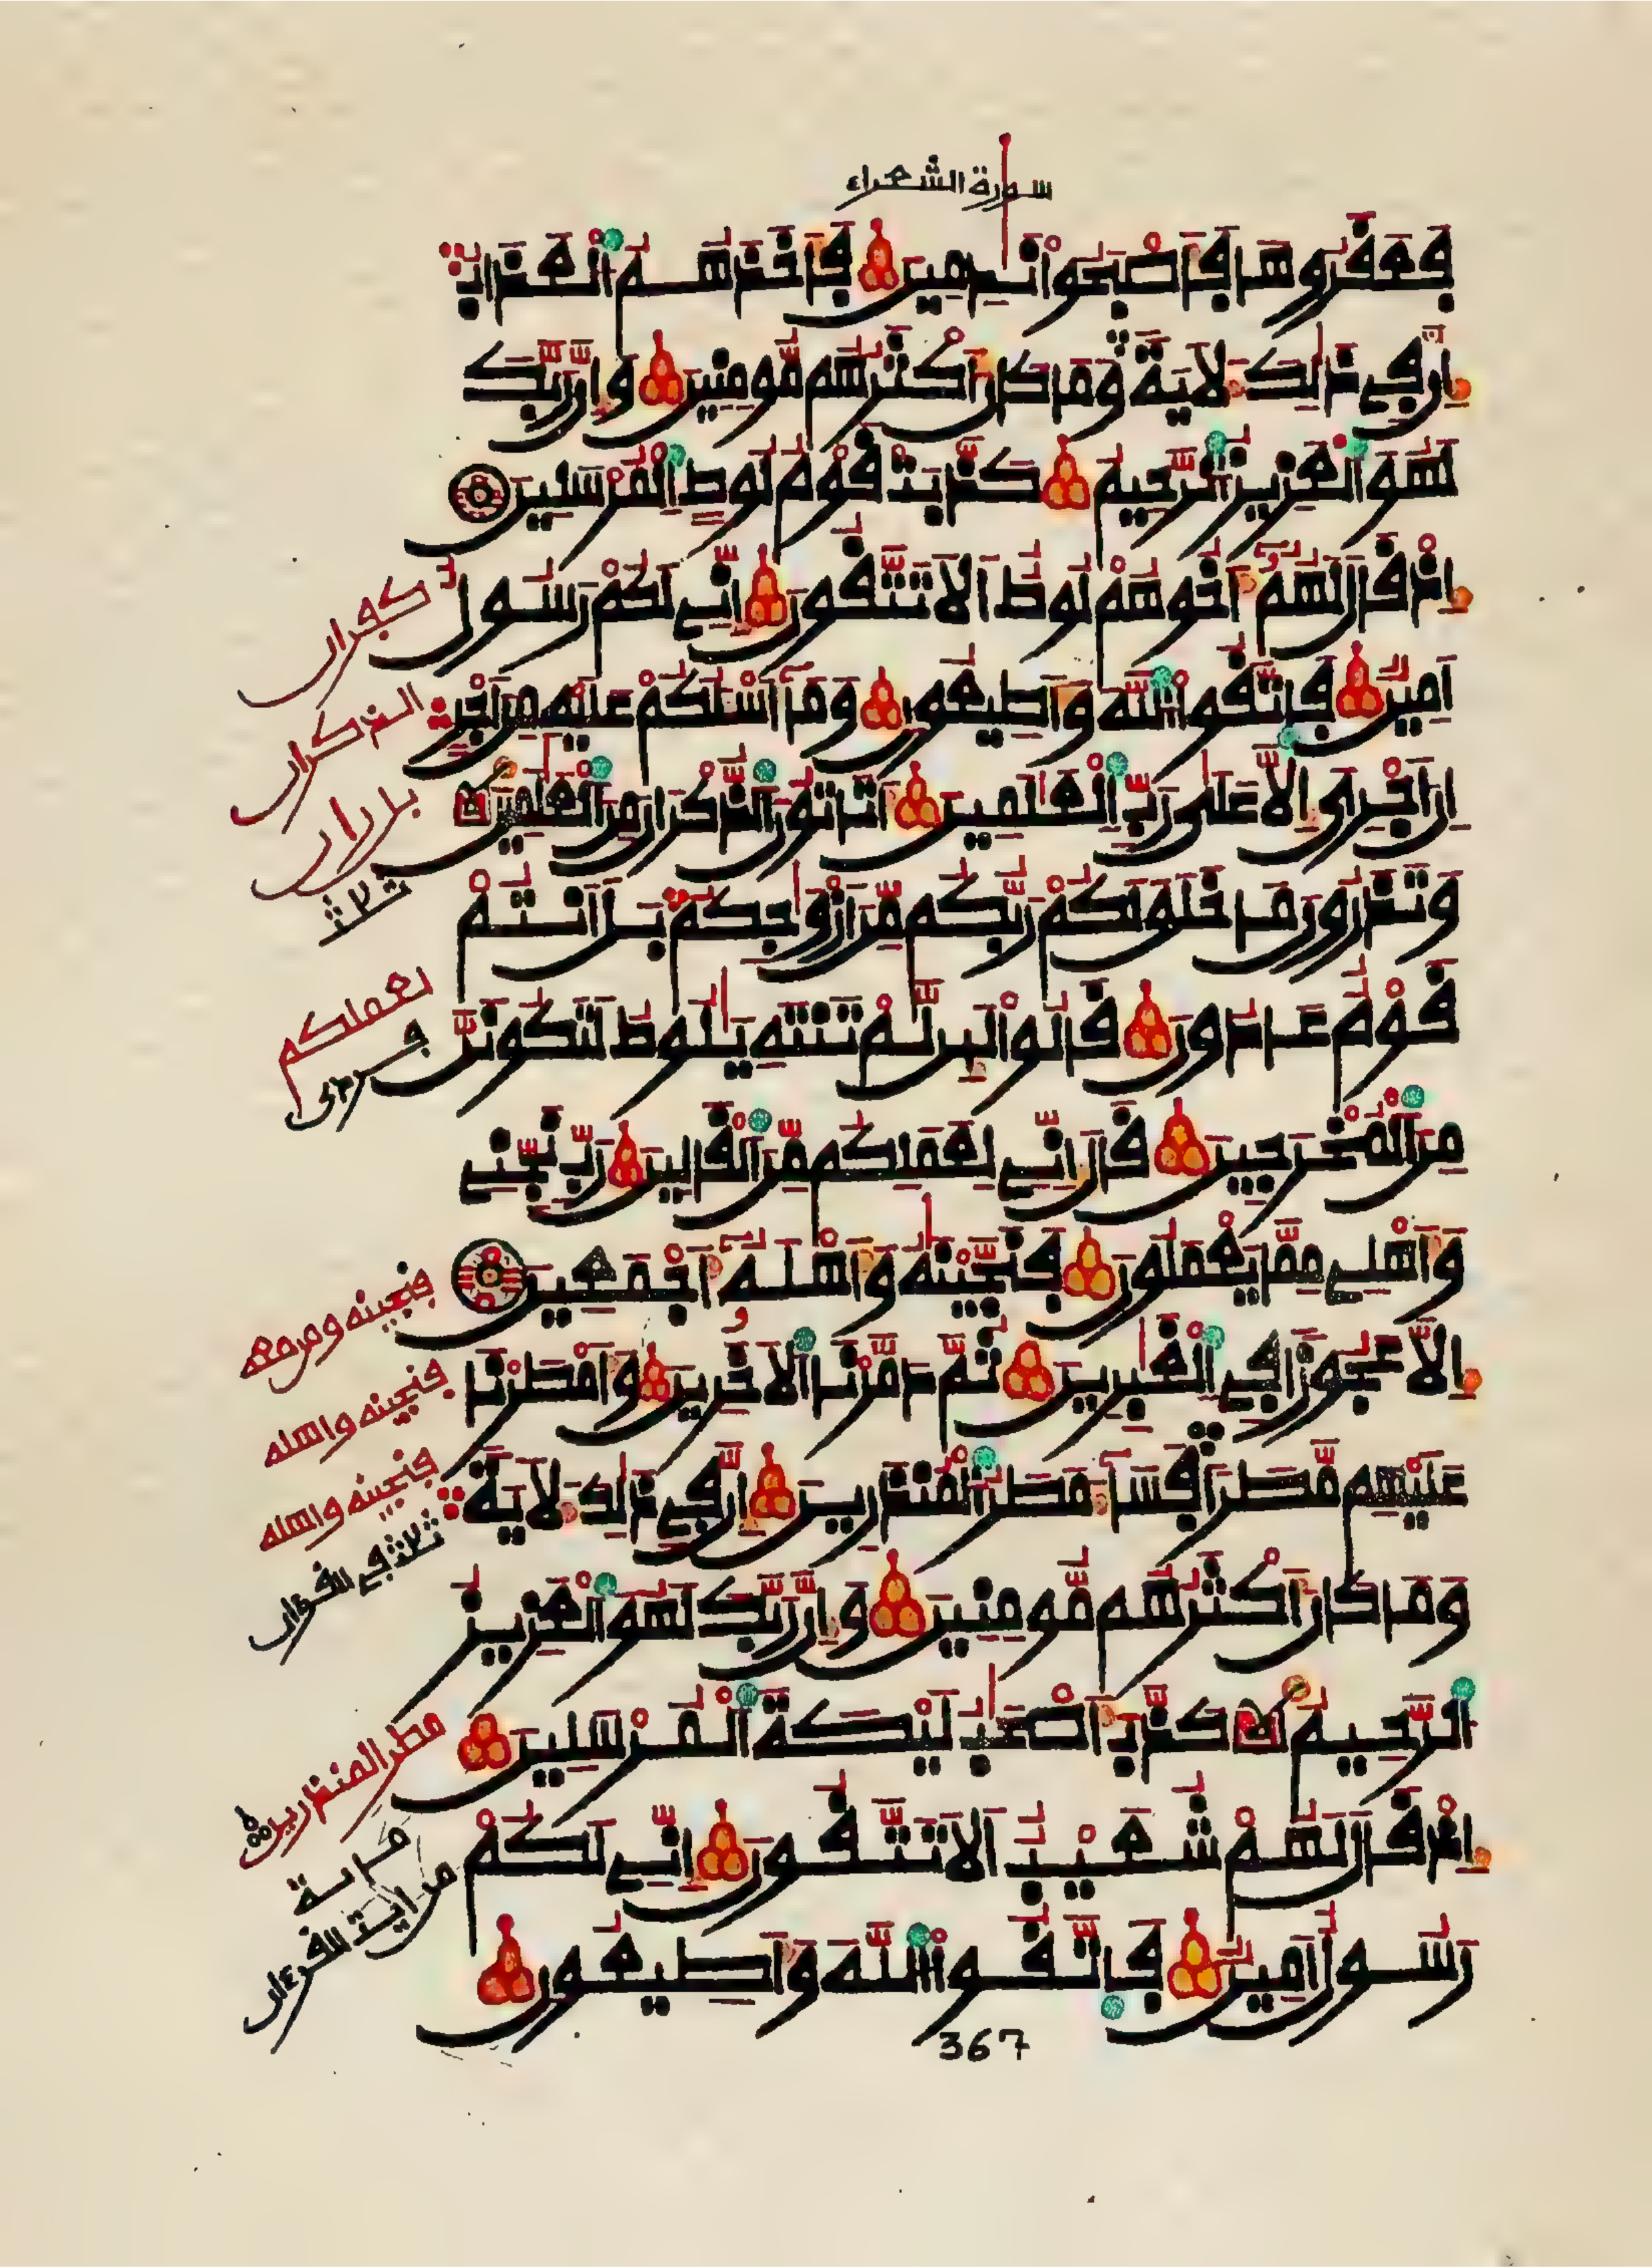 سورة الشعراء
فَعَقَرُوهَا فَأَصْبَحُوا نَٰدِمِينَ فَأَخَذَهُمُ الْعَذَابُ
إِنَّ فِي ذَٰلِكَ لَآيَةً وَمَا كَانَ أَكْثَرُهُم مُّومِنِينَ وَإِنَّ رَبَّكَ
لَهُوَ الْعَزِيزُ الرَّحِيمُ كَذَّبَتْ قَوْمُ لُوطٍ الْمُرْسَلِينَ
إِذْ قَالَ لَهُمُ أَخُوهُمْ لُوطٌ أَلَا تَتَّقُونَ إِنِّي لَكُمْ رَسُولٌ
أَمِينٌ فَاتَّقُوا اللَّهَ وَأَطِيعُونِ وَمَا أَسْـَٔلُكُمْ عَلَيْهِ مِنْ أَجْرٍ
إِنْ أَجْرِيَ إِلَّا عَلَىٰ رَبِّ الْعَٰلَمِينَ أَتَاتُونَ الذُّكْرَانَ مِنَ الْعَٰلَمِينَ
وَتَذَرُونَ مَا خَلَقَ لَكُمْ رَبُّكُم مِّنْ أَزْوَٰجِكُم بَلْ أَنتُمْ
قَوْمٌ عَادُونَ قَالُوا لَئِن لَّمْ تَنتَهِ يَٰلُوطُ لَتَكُونَنَّ
مِنَ الْمُخْرَجِينَ قَالَ إِنِّي لِعَمَلِكُم مِّنَ الْقَالِينَ رَبِّ نَجِّنِي
وَأَهْلِي مِمَّا يَعْمَلُونَ فَنَجَّيْنَٰهُ وَأَهْلَهُ أَجْمَعِينَ
إِلَّا عَجُوزًا فِي الْغَٰبِرِينَ ثُمَّ دَمَّرْنَا الْآخَرِينَ وَأَمْطَرْنَا
عَلَيْهِم مَّطَرًا فَسَاءَ مَطَرُ الْمُنذَرِينَ إِنَّ فِي ذَٰلِكَ لَآيَةً
وَمَا كَانَ أَكْثَرُهُم مُّومِنِينَ وَإِنَّ رَبَّكَ لَهُوَ الْعَزِيزُ
الرَّحِيمُ كَذَّبَ أَصْحَٰبُ لَيْكَةَ الْمُرْسَلِينَ
إِذْ قَالَ لَهُمْ شُعَيْبٌ أَلَا تَتَّقُونَ إِنِّي لَكُمْ
رَسُولٌ أَمِينٌ فَاتَّقُوا اللَّهَ وَأَطِيعُونِ
كفران
الذكران
ثلاث
لعملكم
فنجينه ومن معه
فنجينه وأهله
فنجينه وأهله
ثلاث في القرءان
مطر المنذرين
367